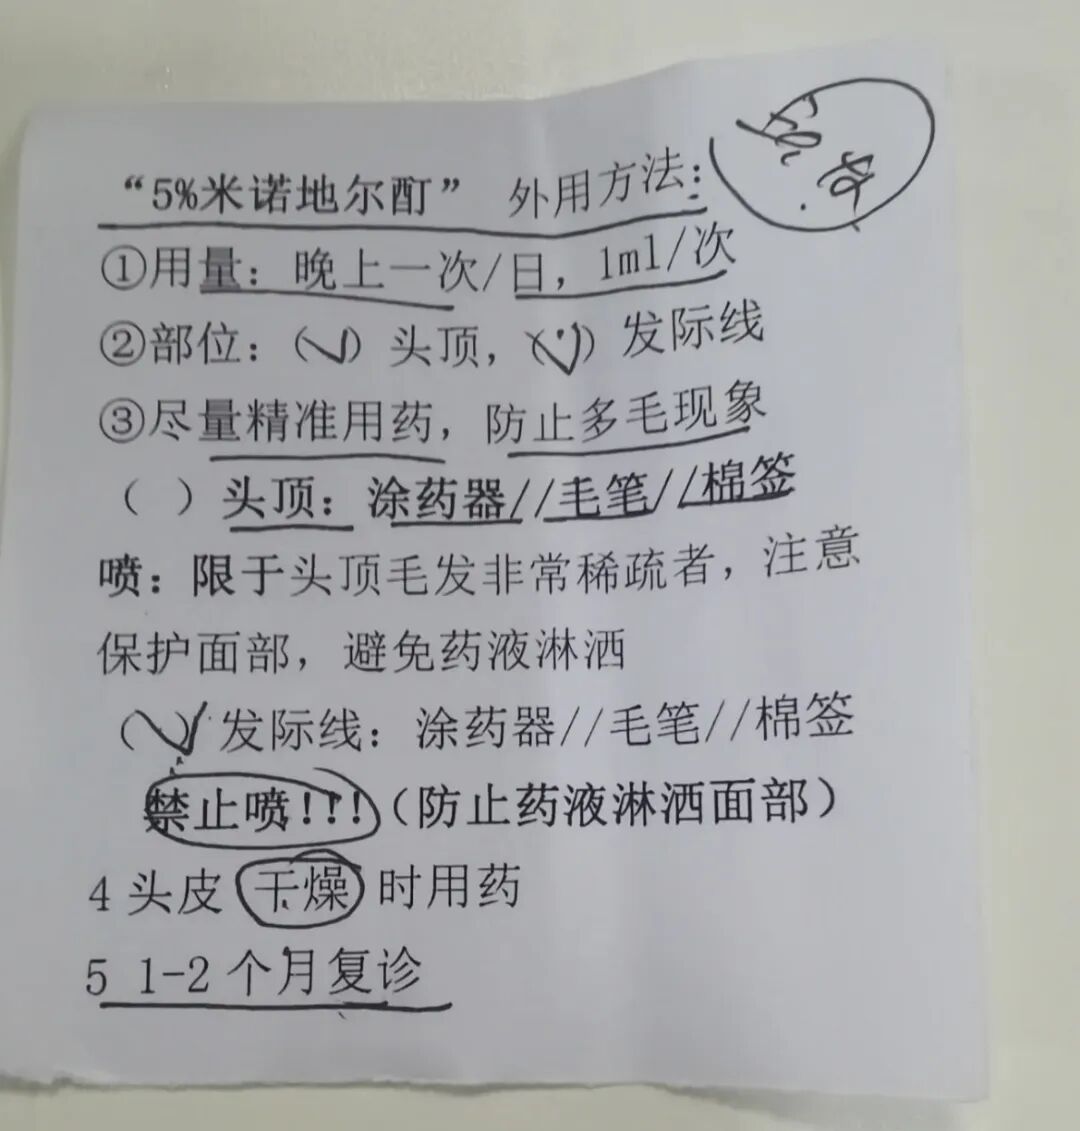 “5%米诺地尔酊” 外用方法:
①用量: 晚上一次/日, 1ml/次
②部位: (✓) 头顶, (✓) 发际线
③尽量精准用药, 防止多毛现象
( ) 头顶: 涂药器//毛笔//棉签
喷: 限于头顶毛发非常稀疏者, 注意
保护面部, 避免药液淋洒
(✓) 发际线: 涂药器//毛笔//棉签
禁止喷!!! (防止药液淋洒面部)
4 头皮 干燥 时用药
5 1-2 个月复诊